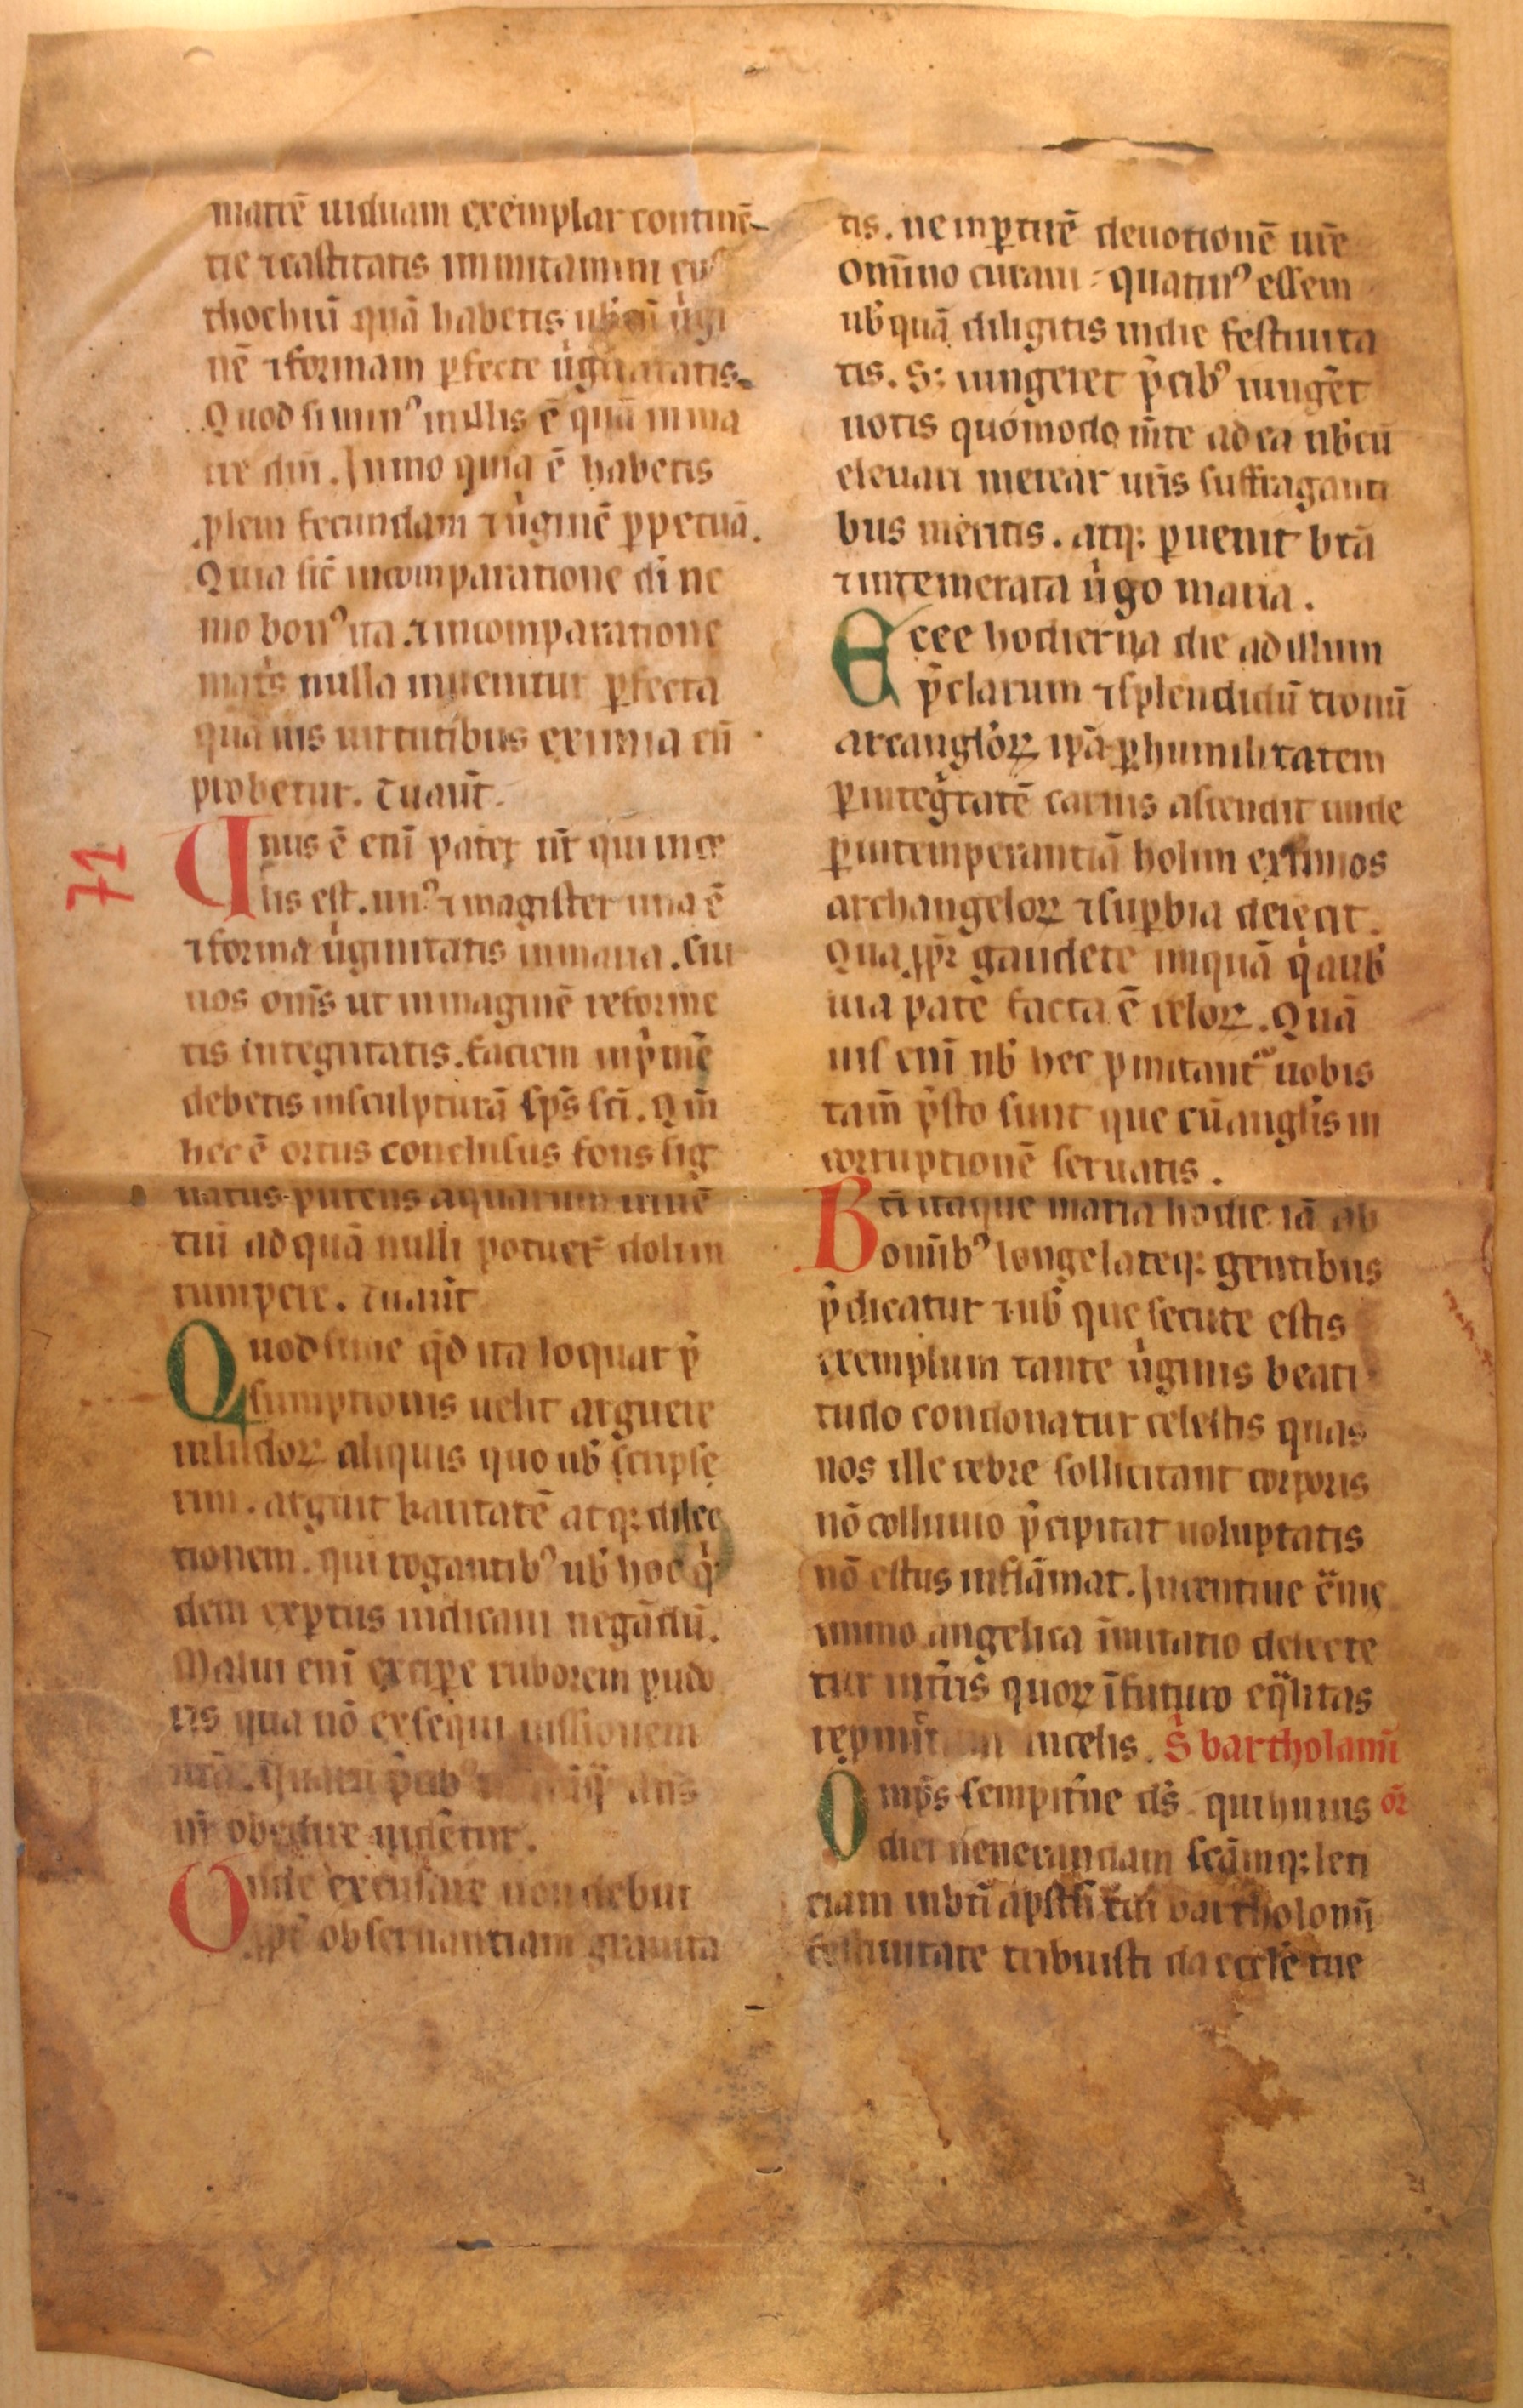 matrē uiduam exemplar continē-
tie ⁊castitatis immitamini eus
thochiū quā habetis ub̄ ūgi
nē ⁊formam ꝑfecte ūginitatis.
Quod si minꝰ in illis ē quā in ma
tre dn̄i. Inmo quia ē habetis
plem fecundam ⁊ūginē ꝑpetuā.
Quia sic̄ incomparatione di ne
mo bonꝰ ita. ⁊incomparatione
mat̄s nulla inuenitur ꝑfecta
quā uis uirtutibus eximia cū
probetur. Tuaut̄.
Unus ē enī pater ur̄ qui in ce
lis est. unꝰ ⁊magister una ē
⁊forma ūginitatis in maria. Sui
uos om̄s ut in imaginē reforme
tis integritatis. faciem inp̄mē
debetis insculpturā sp̄s sc̄i. Qm̄
hec ē ortus conclusus fons sig
natus puteus aquarum uiuē
tiū ad quā nulli potuer̄ doli in
rumpere. Tuaut̄
71
Quod siue qd̄ ita loquar p̄
sumptionis uelit arguere
inuidoꝝ aliquis quo ub̄ scripse
rim. arguit karitatē atq: dilec
tionem. qui rogantibꝰ ub̄ hoc q̇
dem exptus iudicaui negādū.
Malui enī exciꝑe ruborem pudo
ris qua nō exsequi iussionem
ur̄ obedire uidētur.
Unde excusare non debui
ppt̄ obseruantiam grauita
tis. ne inꝑtirē deuotionē ur̄e
omīno curaui quatinꝰ essem
ub̄ quā diligitis in die festiuita
tis. S: iungeret p̄cibꝰ iungēt
uotis quomodo in̄te ad ea ub̄cū
eleuari merear ur̄is suffraganti
bus meritis. atq: ꝑuenit bt̄a
⁊intemerata ūgo maria.
Ecce hodierna die ad illum
p̄clarum ⁊splendidū tronū
arcangl̄oꝝ ip̄a ꝑhumilitatem
ꝑintegr̄tatē carnis ascendit unde
ꝑintemperantiā holim eximios
archangeloꝝ ⁊suꝑbia deiecit.
Qua ppr̄ gaudete inquā q̇a ub̄
uia pate facta ē celoꝝ. Quā
uis enī ub̄ hec pmitant̄ uobis
tam̄ p̄sto sunt que cū angl̄is in
corruptionē seruatis.
Bt̄i itaque maria hodie iā ab
omīb̄ꝰ longe lateq: gentibus
p̄dicatur ⁊ub̄ que secute estis
exemplum tante ūginis beati
tudo condonatur celestis quas
nos ille cebre sollicitant corporis
nō colluuio p̄cipitat uoluptatis
nō estus inflāmat. Incentiue
immo angelica īmitatio delecte
tur in tr̄is quoꝝ īfuturo eq̇litas
repmit̄ in celis. S̄ bartholamī
Omps̄ sempit̄ne ds̄ qui huius or̄
diei uenerandam scāmq: leti
ciam in bt̄i apstl̄i tui bartholomī
festiuitate tribuisti da eccle̅ tue